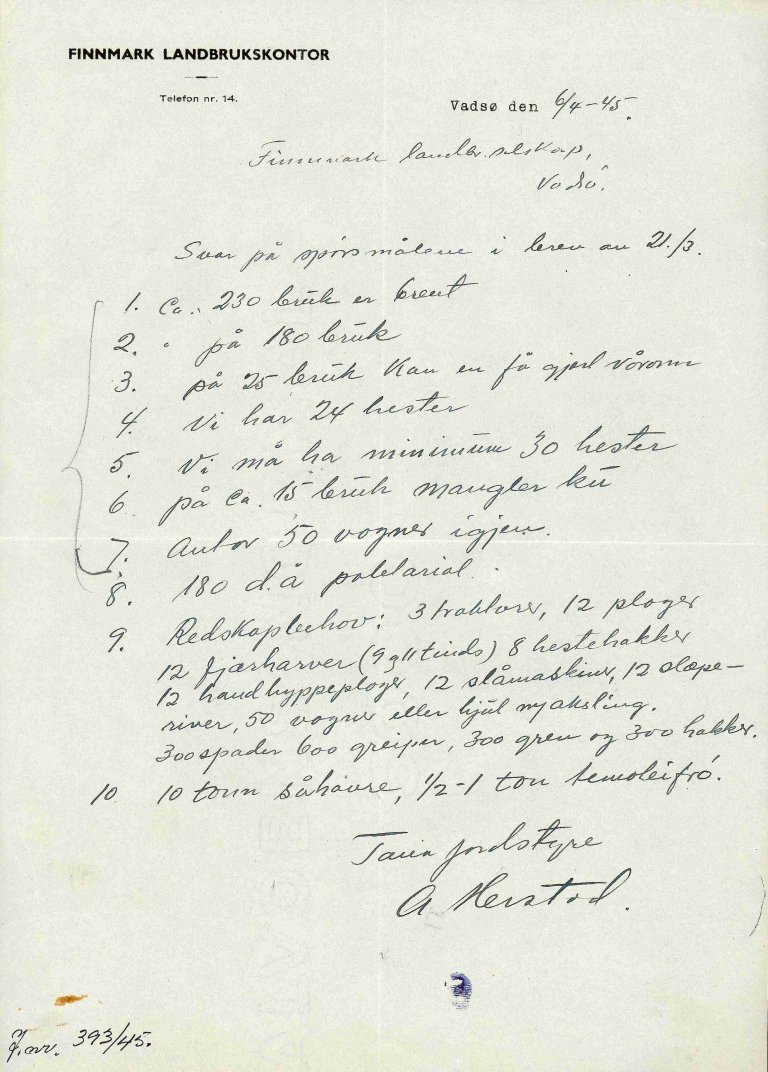 FINNMARK LANDBRUKSKONTOR
Telefon nr. 14.
Vadsø den 6/4-45.
Finnmark landbr.selskap,
Vadsø.
Svar på spörsmålene i brev av 21./3.
1. Ca. 230 brük er brent
2. " på 180 brük
3. på 25 brük kan en få gjort våronn
4. Vi har 24 hester
5. Vi må ha minimüm 30 hester
6 på ca. 15 brük mangler kü
7. Antar 50 vogner igjen.
8. 180 d.å potetarial.
9. Redskapbehov: 3 traktorer, 12 ploger
12 fjærharver (9 og 11 tinds) 8 hestehakker
12 handhyppeploger, 12 slåmaskiner, 12 slæpe-
river, 50 vogner eller hjül m/aksling.
300 spader 600 greiper, 300 gren og 300 hakker.
10 10 tonn såhavre, 1/2-1 ton temoteifrö.
Tana jordstyre
A Herstad.
J.nr. 393/45.